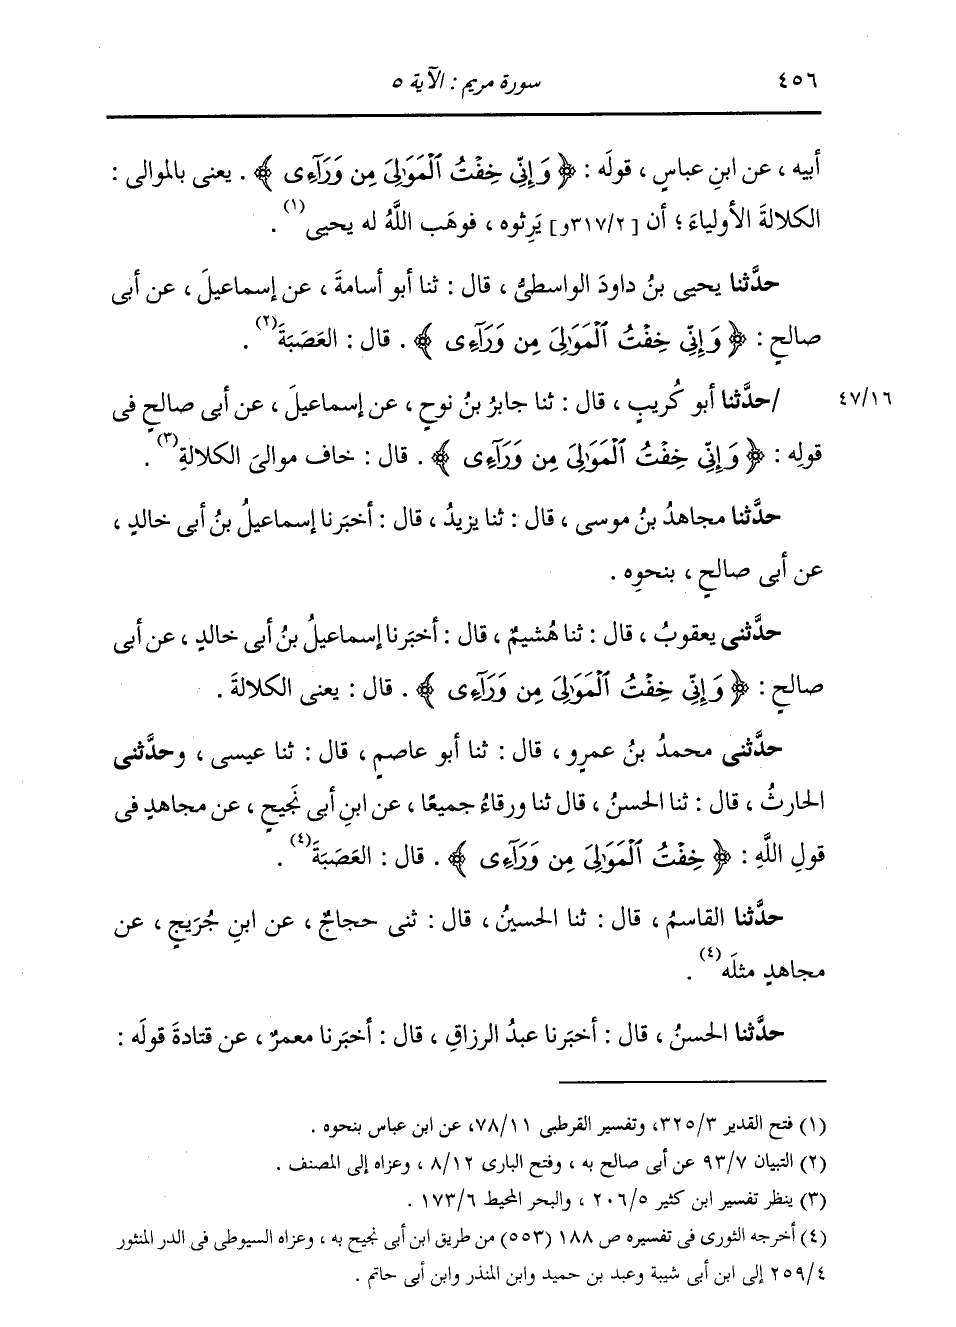 ٤٥٦ سورة مريم : الآية ٥
أبيه ، عن ابنِ عباسٍ ، قولَه : ﴿ وَإِنِّي خِفْتُ ٱلْمَوَٰلِىَ مِن وَرَآءِى ﴾ . يعنى بالموالى :
الكلالةَ الأولياءَ ؛ أن [٣١٧/٢و] يَرِثوه ، فوهَب اللَّهُ له يحيى(١) .
حدَّثنا يحيى بنُ داودَ الواسطىُّ ، قال : ثنا أبو أسامةَ ، عن إسماعيلَ ، عن أبى
صالحٍ : ﴿ وَإِنِّي خِفْتُ ٱلْمَوَٰلِىَ مِن وَرَآءِى ﴾ . قال : العَصَبَةَ(٢) .
٤٧/١٦ /حدَّثنا أبو كُريبٍ ، قال : ثنا جابرُ بنُ نوحٍ ، عن إسماعيلَ ، عن أبى صالحٍ فى
قولِه : ﴿ وَإِنِّي خِفْتُ ٱلْمَوَٰلِىَ مِن وَرَآءِى ﴾ . قال : خاف موالىَ الكلالةِ(٣) .
حدَّثنا مجاهدُ بنُ موسى ، قال : ثنا يزيدُ ، قال : أخبَرنا إسماعيلُ بنُ أبى خالدٍ ،
عن أبى صالحٍ ، بنحوِه .
حدَّثنى يعقوبُ ، قال : ثنا هُشيمٌ ، قال : أخبَرنا إسماعيلُ بنُ أبى خالدٍ ، عن أبى
صالحٍ : ﴿ وَإِنِّي خِفْتُ ٱلْمَوَٰلِىَ مِن وَرَآءِى ﴾ . قال : يعنى الكلالةَ .
حدَّثنى محمدُ بنُ عمرٍو ، قال : ثنا أبو عاصمٍ ، قال : ثنا عيسى ، وحدَّثنى
الحارثُ ، قال : ثنا الحسنُ ، قال ثنا ورقاءُ جميعًا ، عن ابنِ أبى نَجيحٍ ، عن مجاهدٍ فى
قولِ اللَّهِ : ﴿ خِفْتُ ٱلْمَوَٰلِىَ مِن وَرَآءِى ﴾ . قال : العَصَبَةَ(٤) .
حدَّثنا القاسمُ ، قال : ثنا الحسينُ ، قال : ثنى حجاجٌ ، عن ابنِ جُرَيجٍ ، عن
مجاهدٍ مثلَه(٤) .
حدَّثنا الحسنُ ، قال : أخبَرنا عبدُ الرزاقِ ، قال : أخبَرنا معمرٌ ، عن قتادةَ قولَه :
(١) فتح القدير ٣٢٥/٣، وتفسير القرطبى ٧٨/١١، عن ابن عباس بنحوه .
(٢) التبيان ٩٣/٧ عن أبى صالح به ، وفتح البارى ٨/١٢ ، وعزاه إلى المصنف .
(٣) ينظر تفسير ابن كثير ٢٠٦/٥ ، والبحر المحيط ١٧٣/٦ .
(٤) أخرجه الثورى فى تفسيره ص ١٨٨ (٥٥٣) من طريق ابن أبى نجيح به ، وعزاه السيوطى فى الدر المنثور
٢٥٩/٤ إلى ابن أبى شيبة وعبد بن حميد وابن المنذر وابن أبى حاتم .